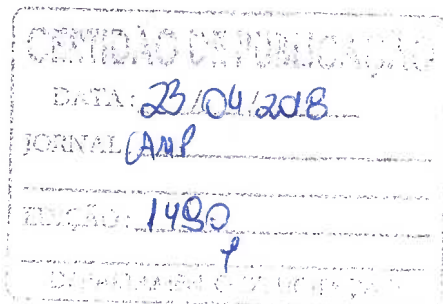 CERTIDÃO DE PUBLICAÇÃO
DATA: 23/04/2018
JORNAL AMP
EDIÇÃO: 1490